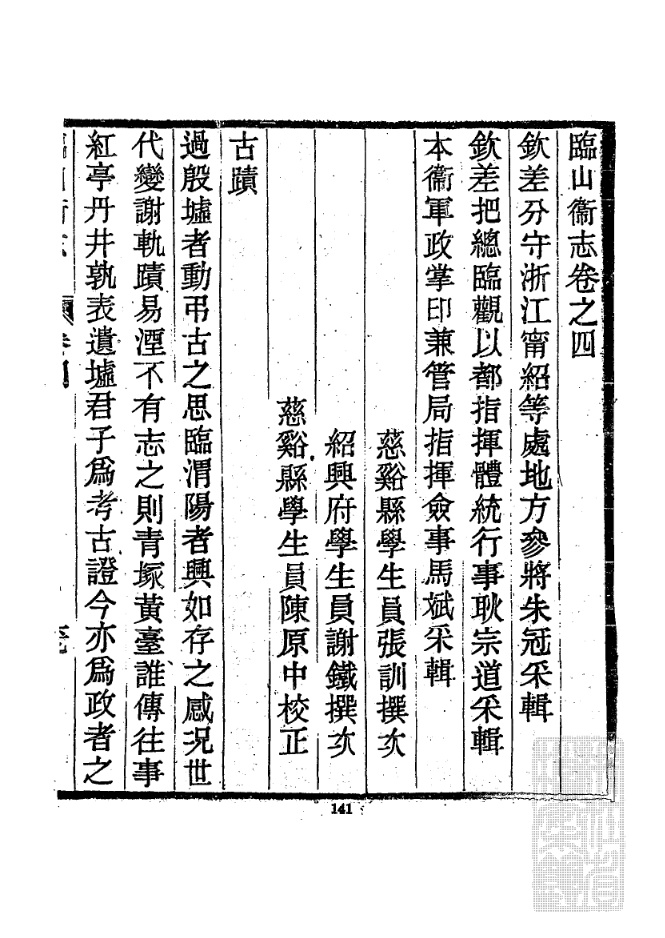 臨山衞志卷之四
欽差分守浙江甯紹等處地方參將朱冠采輯
欽差把總臨觀以都指揮體統行事耿宗道采輯
本衞軍政掌印兼管局指揮僉事馬斌采輯
慈谿縣學生員張訓撰次
紹興府學生員謝鐵撰次
慈谿縣學生員陳原中校正
古蹟
過殷墟者動弔古之思臨渭陽者興如存之感況世
代變謝軌蹟易湮不有志之則青塚黃臺誰傳往事
紅亭丹井孰表遺墟君子爲考古證今亦爲政者之
141